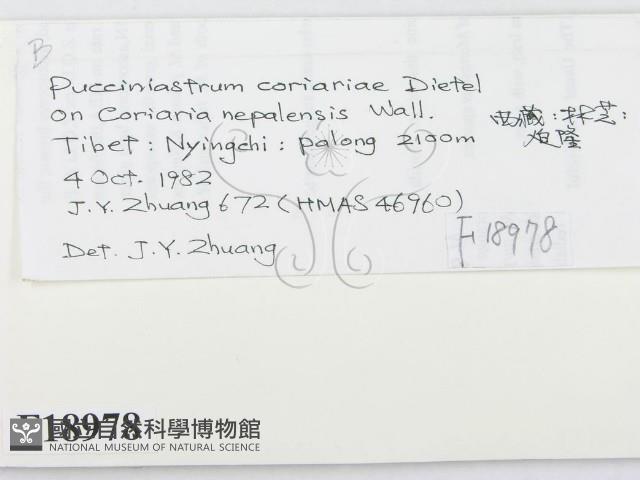 B
Pucciniastrum coriariae Dietel
on Coriaria nepalensis Wall.
Tibet: Nyingchi: palong 2100m
西藏:林芝:
4 Oct. 1982
J.Y. Zhuang 672 (HMAS 46960)
Det. J.Y. Zhuang
F18978
F18978
國立自然科學博物館
NATIONAL MUSEUM OF NATURAL SCIENCE